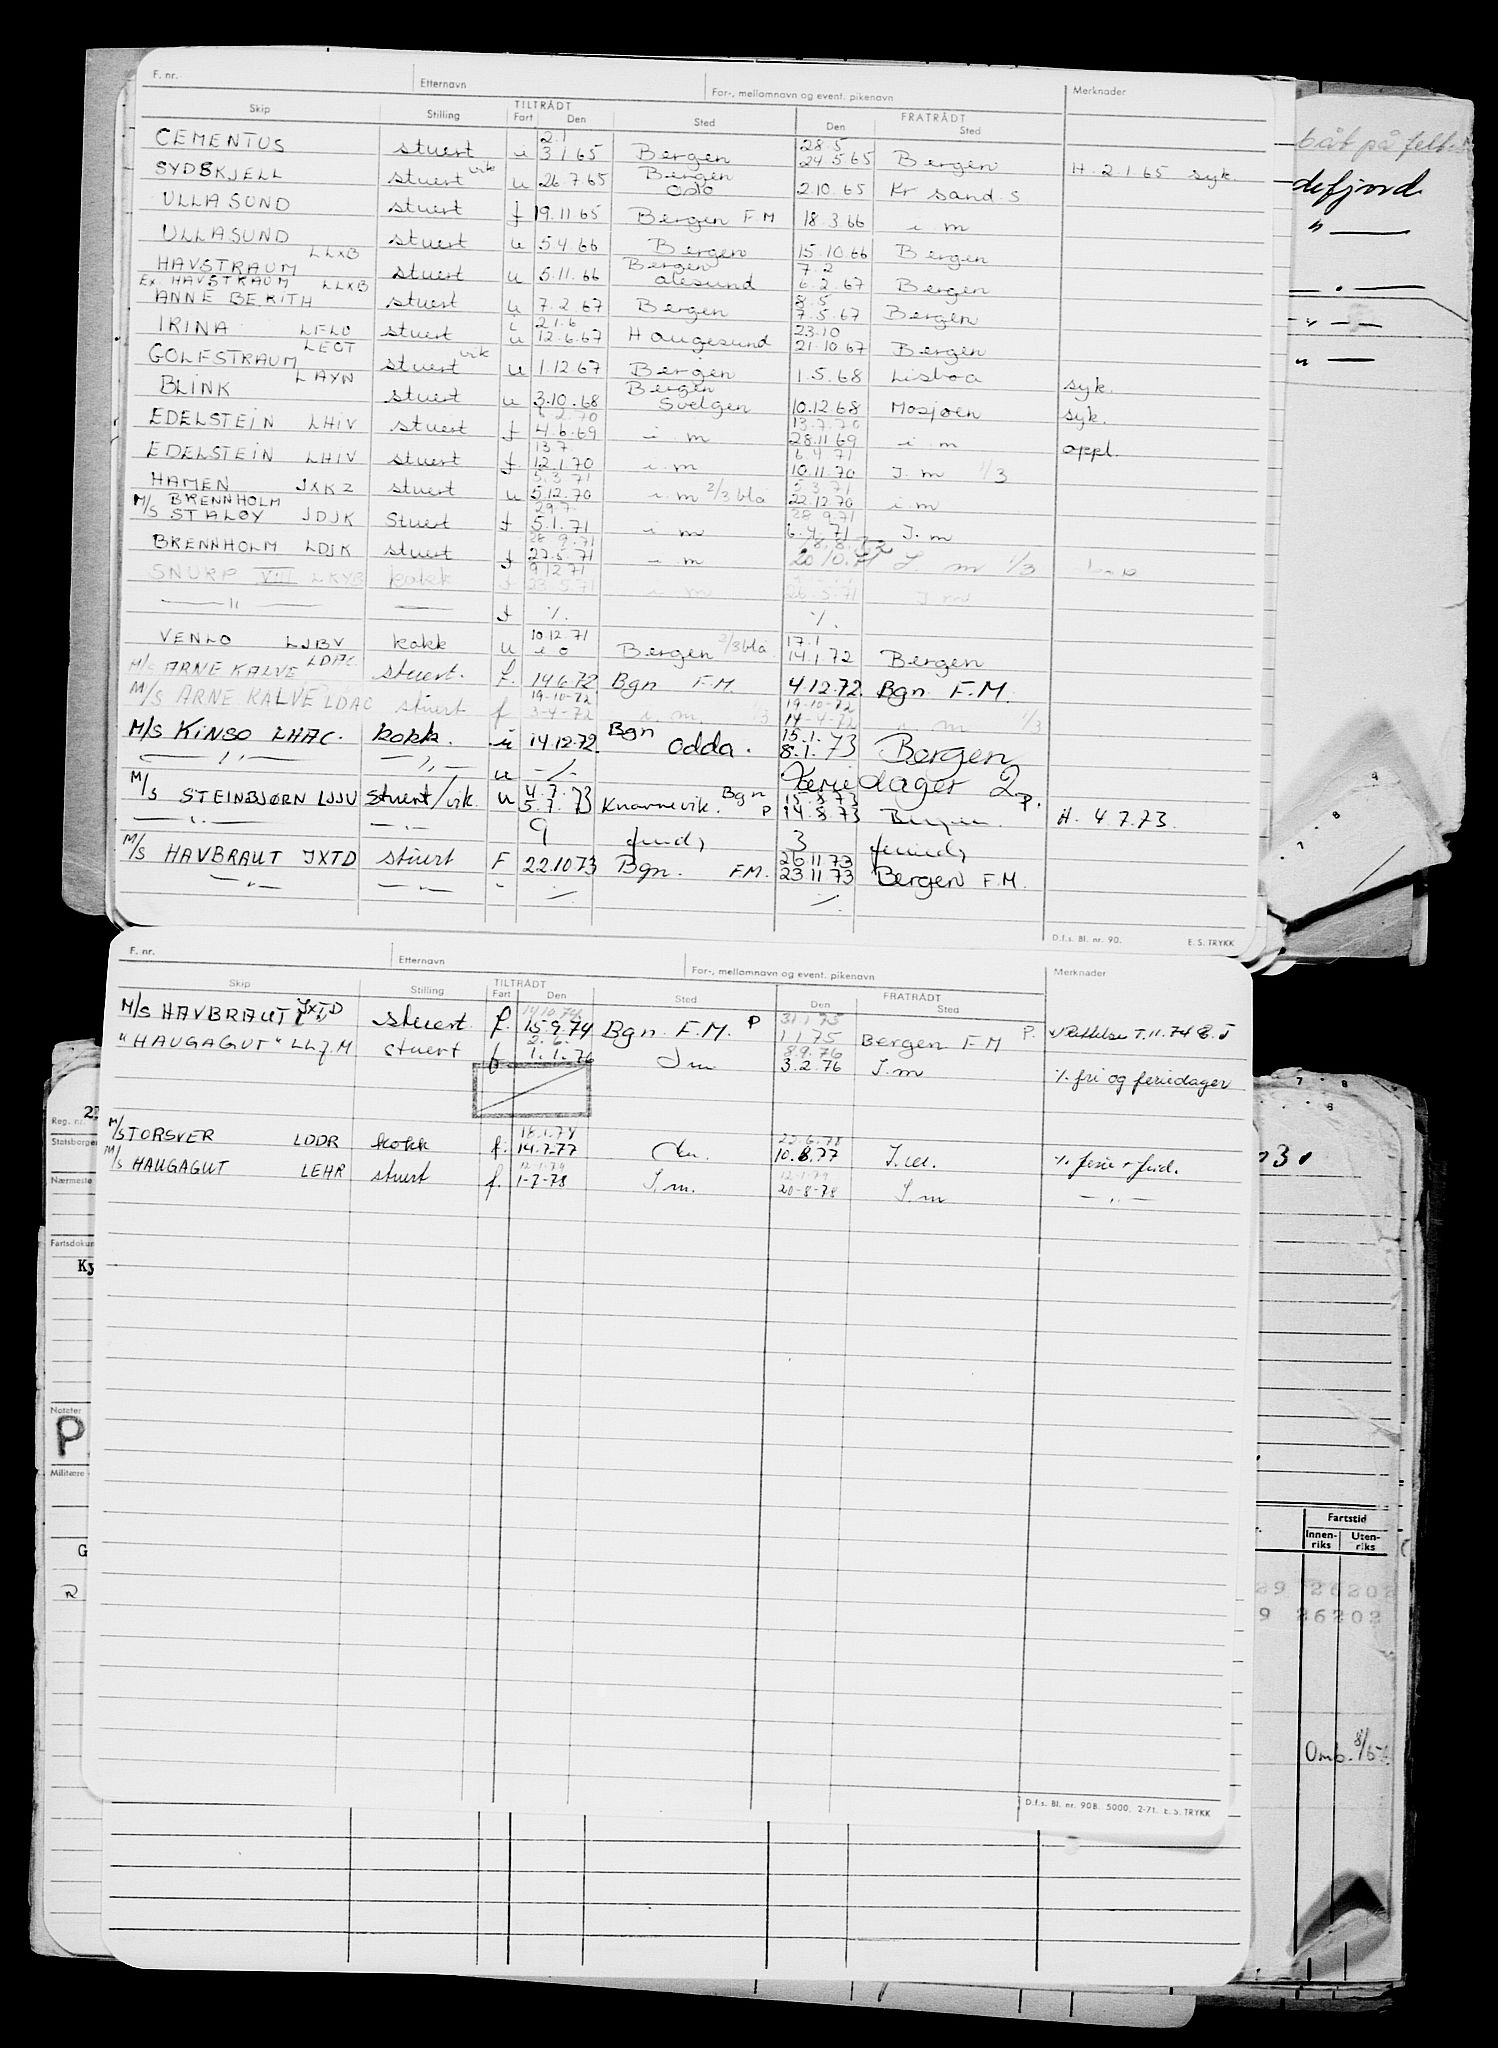 F. nr. Etternavn For-, mellomnavn og event. pikenavn Merknader
Skip Stilling TILTRÅDT Fart Den Sted FRATRÅDT Den Sted
CEMENTUS stuert i 2.1 3.1.65 Bergen 28.5 24.5.65 Bergen H. 2.1.65 syk.
SYDSKJELL stuert vik u 26.7.65 Bergen Oslo 2.10.65 Kr sand. S
ULLASUND stuert f 19.11.65 Bergen F M 18.3.66 i m
ULLASUND stuert u 5.4.66 Bergen 15.10.66 Bergen
HAVSTRAUM LLXB stuert u 5.11.66 Bergen Ålesund 7.2 6.2.67 Bergen
Ex HAVSTRAUM LLXB
ANNE BERITH stuert u 7.2.67 Bergen 8.5 7.5.67 Bergen
IRINA LFLO stuert i u 21.6 12.6.67 Haugesund 23.10 21.10.67 Bergen
GOLFSTRAUM LEOT stuert vik u 1.12.67 Bergen 1.5.68 Lisboa syk.
BLINK LAYN stuert u 3.10.68 Bergen Svelgen 10.12.68 Mosjøen syk.
EDELSTEIN LHIV stuert f 2.70 4.6.69 i m 13.7.70 28.11.69 i m oppl.
EDELSTEIN LHIV stuert f. 13.7 12.1.70 i m 6.4.71 10.11.70 I. m 1/3
HAMEN JXKZ stuert u 5.3.71 5.12.70 i. m 2/3 blå 5.3.71 22.12.70 i. m
M/S BRENNHOLM
M/S STALØY JDJK Stuert f 29.7. 5.1.71 i m 28.9.71 6.4.71 I. m
BRENNHOLM LDJK stuert f 28.9.71 27.5.71 i m 20/10.71 I m 1/3
SNURP VIII LKYB kokk f 9.12.71 23.5.71 i m 26.5.71 I m
— " — — f ·/. ·/.
VENLO LJBV kokk u 10.12.71 i o Bergen 2/3 blå 17.1 14.1.72 Bergen
M/s ARNE KALVE LDAC. stuert. f. 14.6.72 Bgn F.M. 4.12.72 Bgn F.M.
M/S ARNE KALVE LDAC stuert f 19-10-72 3-4-72 i. m. 1/3 19-10-72 14-4-72 i m 1/3
M/S KINSO LHAC. kokk. u 14.12.72 Bgn Odda. 15.1. 8.1.73 Bergen
— " — — " — u -/- Feriedager 2
M/S STEINBJØRN LJJU stuert/vik. u 4.7.73 5.7.73 Knarrevik. Bgn P 15.8.73 14.8.73 Bergen. P. H. 4.7.73.
— " — — " — 9 frid, 3 feried,
M/S HAVBRAUT JXTD stuert F 22.10.73 Bgn. F.M. 26.11.73 23.11.73 Bergen F.M.
— " — — " — - ·/. ·/.
D.f.s. Bl. nr. 90. E. S. TRYKK
F. nr. Etternavn For-, mellomnavn og event. pikenavn Merknader
Skip Stilling TILTRÅDT Fart Den Sted FRATRÅDT Den Sted
M/S HAVBRAUT JXTD stuert f. 14/10.74 15.9.74 Bgn. F.M. P 31.1.75 1.1.75 Bergen F M P. T.11.74
"HAUGAGUT" stuert f 2.6. 1.1.76 I m 8.9.76 3.2.76 I. m ·/. fri og feriedager
M/S TORSVER LDDR kokk f. 18.1.78 14.7.77 22.6.78 10.8.77 ·/. ferie + frid.
M/S HAUGAGUT LEHR stuert f. 12.1.79 1-7-78 I. m. 12.1.79 20-8-78 I. m — " —
D.f.s. Bl. nr. 90B. 5000, 2-71. E. S. TRYKK
båt på felt
defjord
" —
— " —
— " —
" —
Reg. nr.
Statsborger
Nærmeste
Fartsdokum
Ky
Notater
P
Militære
G
Fartstid
Innen-riks Uten-riks
26202
9 26202
Omb. 8/5